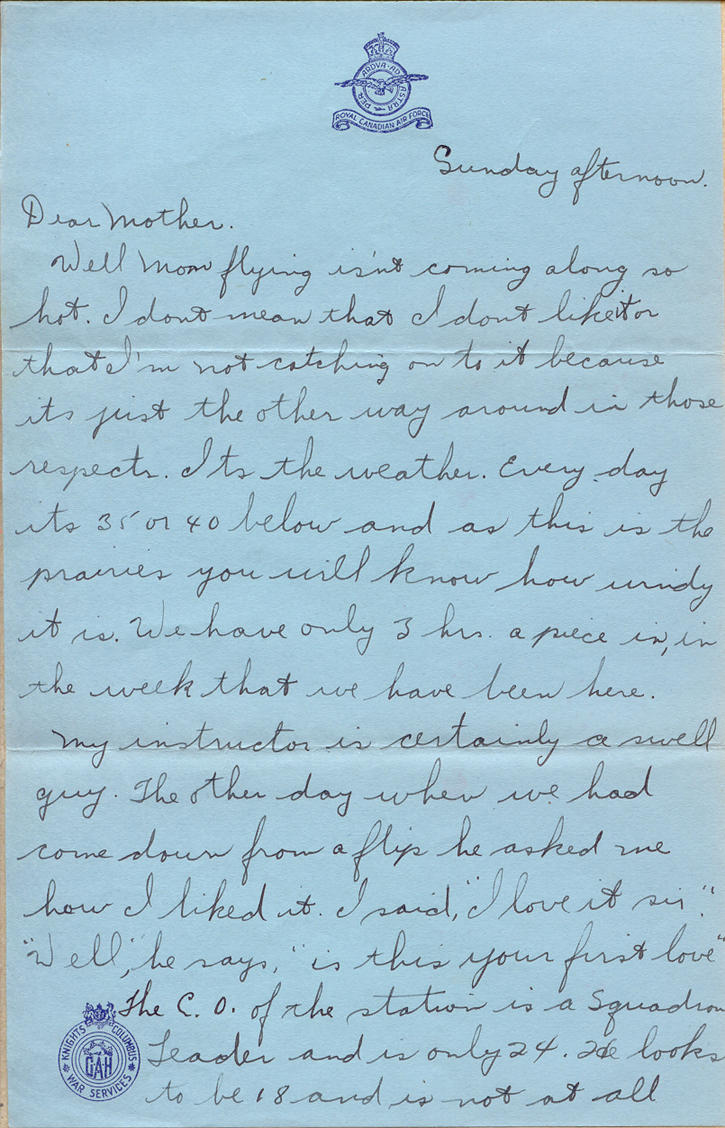 PER ARDVA AD ASTRA
ROYAL CANADIAN AIR FORCE
Sunday afternoon.
Dear Mother.
Well Mom flying isn't coming along so
hot. I dont mean that I dont like it or
that I'm not catching on to it because
its just the other way around in those
respects. Its the weather. Every day
its 35 or 40 below and as this is the
prairies you will know how windy
it is. We have only 3 hrs. a piece in, in
the week that we have been here.
My instructor is certainly a swell
guy. The other day when we had
come down from a flip he asked me
how I liked it. I said, "I love it sir."
"Well", he says, "is this your first love"
The C. O. of the station is a Squadron
Leader and is only 24. He looks
to be 18 and is not at all
KNIGHTS OF COLUMBUS
CAH
WAR SERVICES